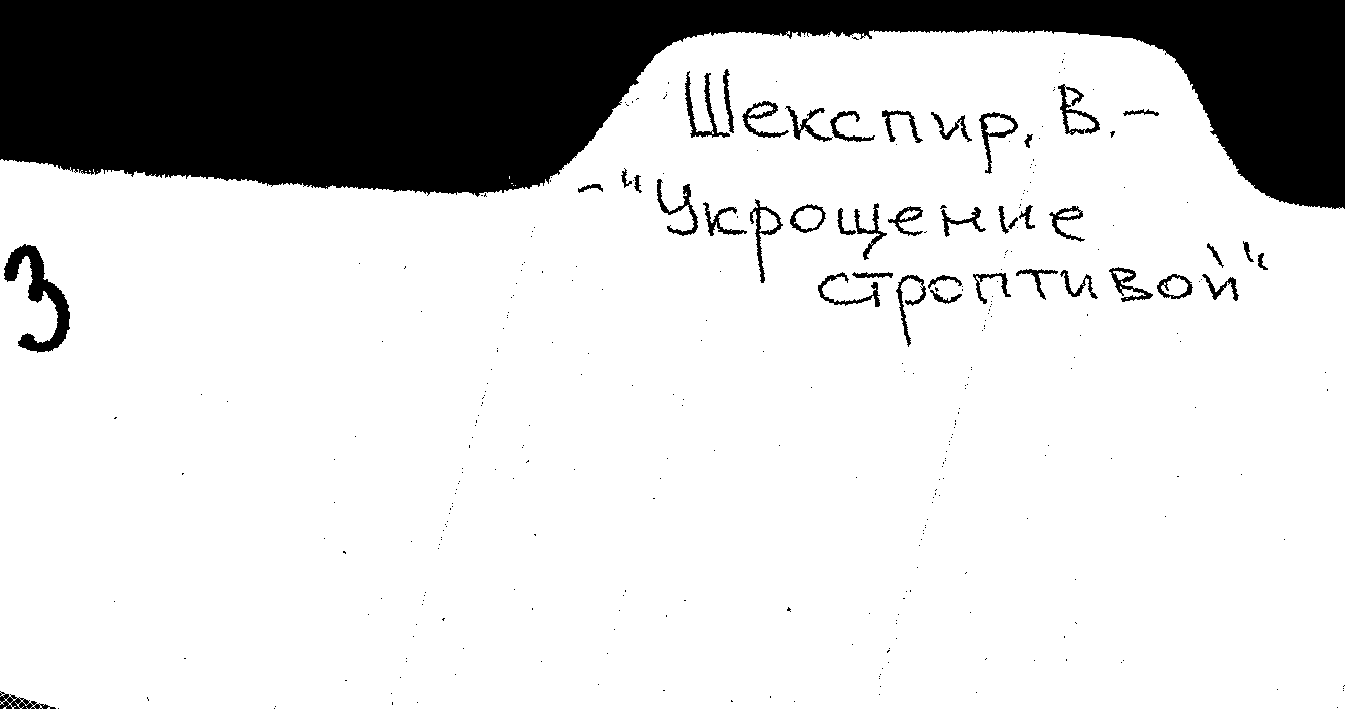 Шекспир, В.-
-"Укрощение
строптивой"
3